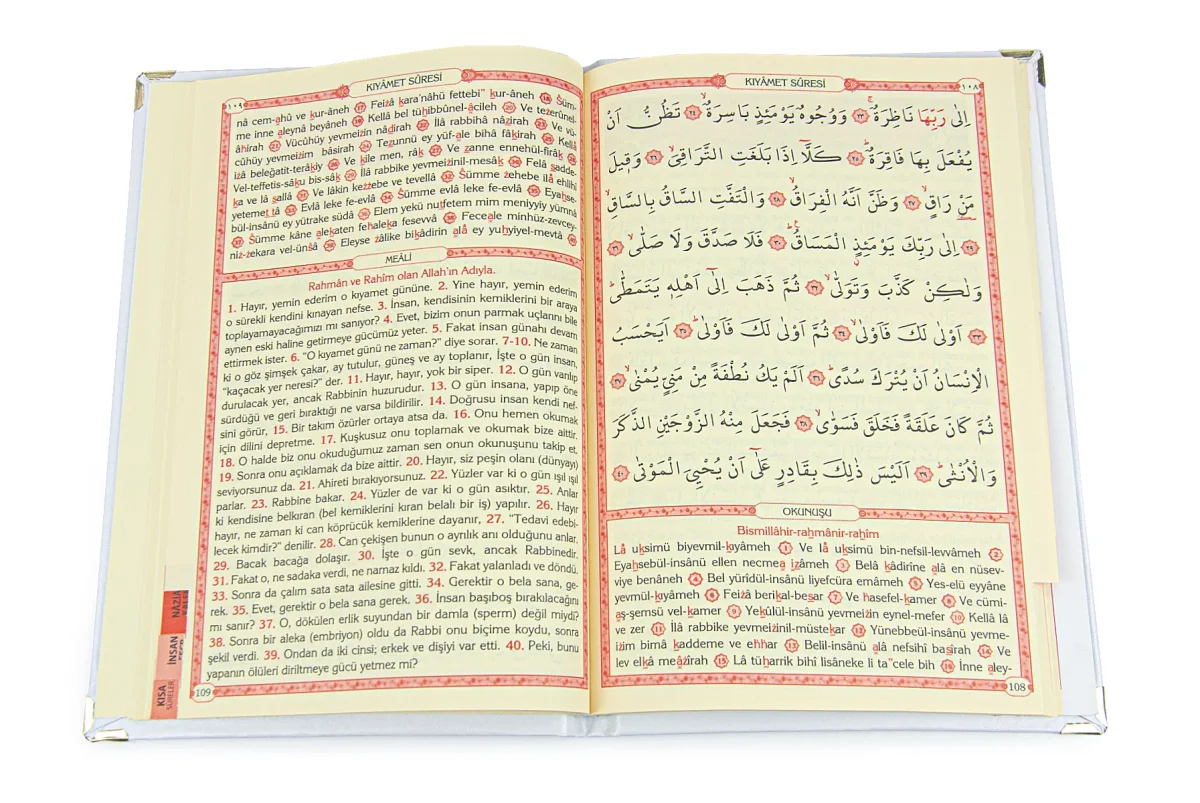 KIYÂMET SÛRESİ
١٠٨
اِلٰى رَبِّهَا نَاظِرَةٌۚ ﴿٢٣﴾ وَوُجُوهٌ يَوْمَئِذٍ بَاسِرَةٌۙ ﴿٢٤﴾ تَظُنُّ اَنْ
يُفْعَلَ بِهَا فَاقِرَةٌۜ ﴿٢٥﴾ كَلَّٓا اِذَا بَلَغَتِ التَّرَاقِيَۙ ﴿٢٦﴾ وَق۪يلَ
مَنْ رَاقٍۙ ﴿٢٧﴾ وَظَنَّ اَنَّهُ الْفِرَاقُۙ ﴿٢٨﴾ وَالْتَفَّتِ السَّاقُ بِالسَّاقِۙ
﴿٢٩﴾ اِلٰى رَبِّكَ يَوْمَئِذٍ الْمَسَاقُۜ ﴿٣٠﴾ فَلَا صَدَّقَ وَلَا صَلّٰىۙ ﴿٣١﴾
وَلٰكِنْ كَذَّبَ وَتَوَلّٰىۙ ﴿٣٢﴾ ثُمَّ ذَهَبَ اِلٰٓى اَهْلِه۪ يَتَمَطّٰىۜ
﴿٣٣﴾ اَوْلٰى لَكَ فَاَوْلٰىۙ ﴿٣٤﴾ ثُمَّ اَوْلٰى لَكَ فَاَوْلٰىۜ ﴿٣٥﴾ اَيَحْسَبُ
الْاِنْسَانُ اَنْ يُتْرَكَ سُدًىۜ ﴿٣٦﴾ اَلَمْ يَكُ نُطْفَةً مِنْ مَنِيٍّ يُمْنٰىۙ ﴿٣٧﴾
ثُمَّ كَانَ عَلَقَةً فَخَلَقَ فَسَوّٰىۙ ﴿٣٨﴾ فَجَعَلَ مِنْهُ الزَّوْجَيْنِ الذَّكَرَ
وَالْاُنْثٰىۜ ﴿٣٩﴾ اَلَيْسَ ذٰلِكَ بِقَادِرٍ عَلٰٓى اَنْ يُحْيِيَ الْمَوْتٰى ﴿٤٠﴾
OKUNUŞU
Bismillâhir-rahmânir-rahîm
Lâ uksimü biyevmil-kıyâmeh 1 Ve lâ uksimü bin-nefsil-levvâmeh 2
Eyahsebül-insânü ellen necmea izâmeh 3 Belâ kâdirîne alâ en nüsev-
viye benâneh 4 Bel yürîdül-insânü liyefcüra emâmeh 5 Yes-elü eyyâne
yevmül-kıyâmeh 6 Feizâ berikal-besar 7 Ve hasefel-kamer 8 Ve cümi-
aş-şemsü vel-kamer 9 Yekûlül-insânü yevmeizin eynel-mefer 10 Kellâ lâ
ve zer 11 İlâ rabbike yevmeizinil-müstekar 12 Yünebbeül-insânü yevme-
izim bimâ kaddeme ve ehhar 13 Belil-insânü alâ nefsihî basîrah 14 Ve
lev elkâ meâzîrah 15 Lâ tüharrik bihî lisâneke li ta"cele bih 16 İnne aley-
108
KIYÂMET SÛRESİ
١٠٩
nâ cem-ahû ve kur-âneh 17 Feizâ kara'nâhü fettebi" kur-âneh 18 Süm-
me inne aleynâ beyâneh 19 Kellâ bel tühibbûnel-âcileh 20 Ve tezerûnel-
âhirah 21 Vücûhüy yevmeizin nâdırah 22 İlâ rabbihâ nâzirah 23 Ve vü-
cûhüy yevmeizim bâsirah 24 Tezunnü ey yüf-ale bihâ fâkirah 25 Kellâ
izâ beleğatit-terâkıy 26 Ve kîle men, râk 27 Ve zanne ennehül-firâk 28
Vel-teffetis-sâku bis-sâk 29 İlâ rabbike yevmeizinil-mesâk 30 Felâ sadde-
ka ve lâ sallâ 31 Ve lâkin kezzebe ve tevellâ 32 Sümme zehebe ilâ ehlihî
yetemettâ 33 Evlâ leke fe-evlâ 34 Sümme evlâ leke fe-evlâ 35 Eyahse-
bül-insânü ey yütrake südâ 36 Elem yekü nutfetem mim meniyyiy yümnâ
37 Sümme kâne alekaten fehaleka fesevvâ 38 Feceale minhüz-zevcey-
niz-zekara vel-ünsâ 39 Eleyse zâlike bikâdirin alâ ey yuhyiyel-mevtâ 40
MEÂLİ
Rahmân ve Rahîm olan Allah'ın Adıyla.
1. Hayır, yemin ederim o kıyamet gününe. 2. Yine hayır, yemin ederim
o sürekli kendini kınayan nefse. 3. İnsan, kendisinin kemiklerini bir araya
toplayamayacağımızı mı sanıyor? 4. Evet, bizim onun parmak uçlarını bile
aynen eski haline getirmeye gücümüz yeter. 5. Fakat insan günahı devam
ettirmek ister. 6. "O kıyamet günü ne zaman?" diye sorar. 7-10. Ne zaman
ki o göz şimşek çakar, ay tutulur, güneş ve ay toplanır, İşte o gün insan,
"kaçacak yer neresi?" der. 11. Hayır, hayır, yok bir siper. 12. O gün varılıp
durulacak yer, ancak Rabbinin huzurudur. 13. O gün insana, yapıp öne
sürdüğü ve geri bıraktığı ne varsa bildirilir. 14. Doğrusu insan kendi nef-
sini görür, 15. Bir takım özürler ortaya atsa da. 16. Onu hemen okumak
için dilini depretme. 17. Kuşkusuz onu toplamak ve okumak bize aittir.
18. O halde biz onu okuduğumuz zaman sen onun okunuşunu takip et.
19. Sonra onu açıklamak da bize aittir. 20. Hayır, siz peşin olanı (dünyayı)
seviyorsunuz da. 21. Ahireti bırakıyorsunuz. 22. Yüzler var ki o gün ışıl ışıl
parlar. 23. Rabbine bakar. 24. Yüzler de var ki o gün asıktır. 25. Anlar
ki kendisine belkıran (bel kemiklerini kıran belalı bir iş) yapılır. 26. Hayır
hayır, ne zaman ki can köprücük kemiklerine dayanır, 27. "Tedavi edebi-
lecek kimdir?" denilir. 28. Can çekişen bunun o ayrılık anı olduğunu anlar.
29. Bacak bacağa dolaşır. 30. İşte o gün sevk, ancak Rabbinedir.
31. Fakat o, ne sadaka verdi, ne namaz kıldı. 32. Fakat yalanladı ve döndü.
33. Sonra da çalım sata sata ailesine gitti. 34. Gerektir o bela sana, ge-
rek. 35. Evet, gerektir o bela sana gerek. 36. İnsan başıboş bırakılacağını
mı sanır? 37. O, dökülen erlik suyundan bir damla (sperm) değil miydi?
38. Sonra bir aleka (embriyon) oldu da Rabbi onu biçime koydu, sonra
şekil verdi. 39. Ondan da iki cinsi; erkek ve dişiyi var etti. 40. Peki, bunu
yapanın ölüleri diriltmeye gücü yetmez mi?
109
NÂZİA
İNSAN
KISA
SÛRELER